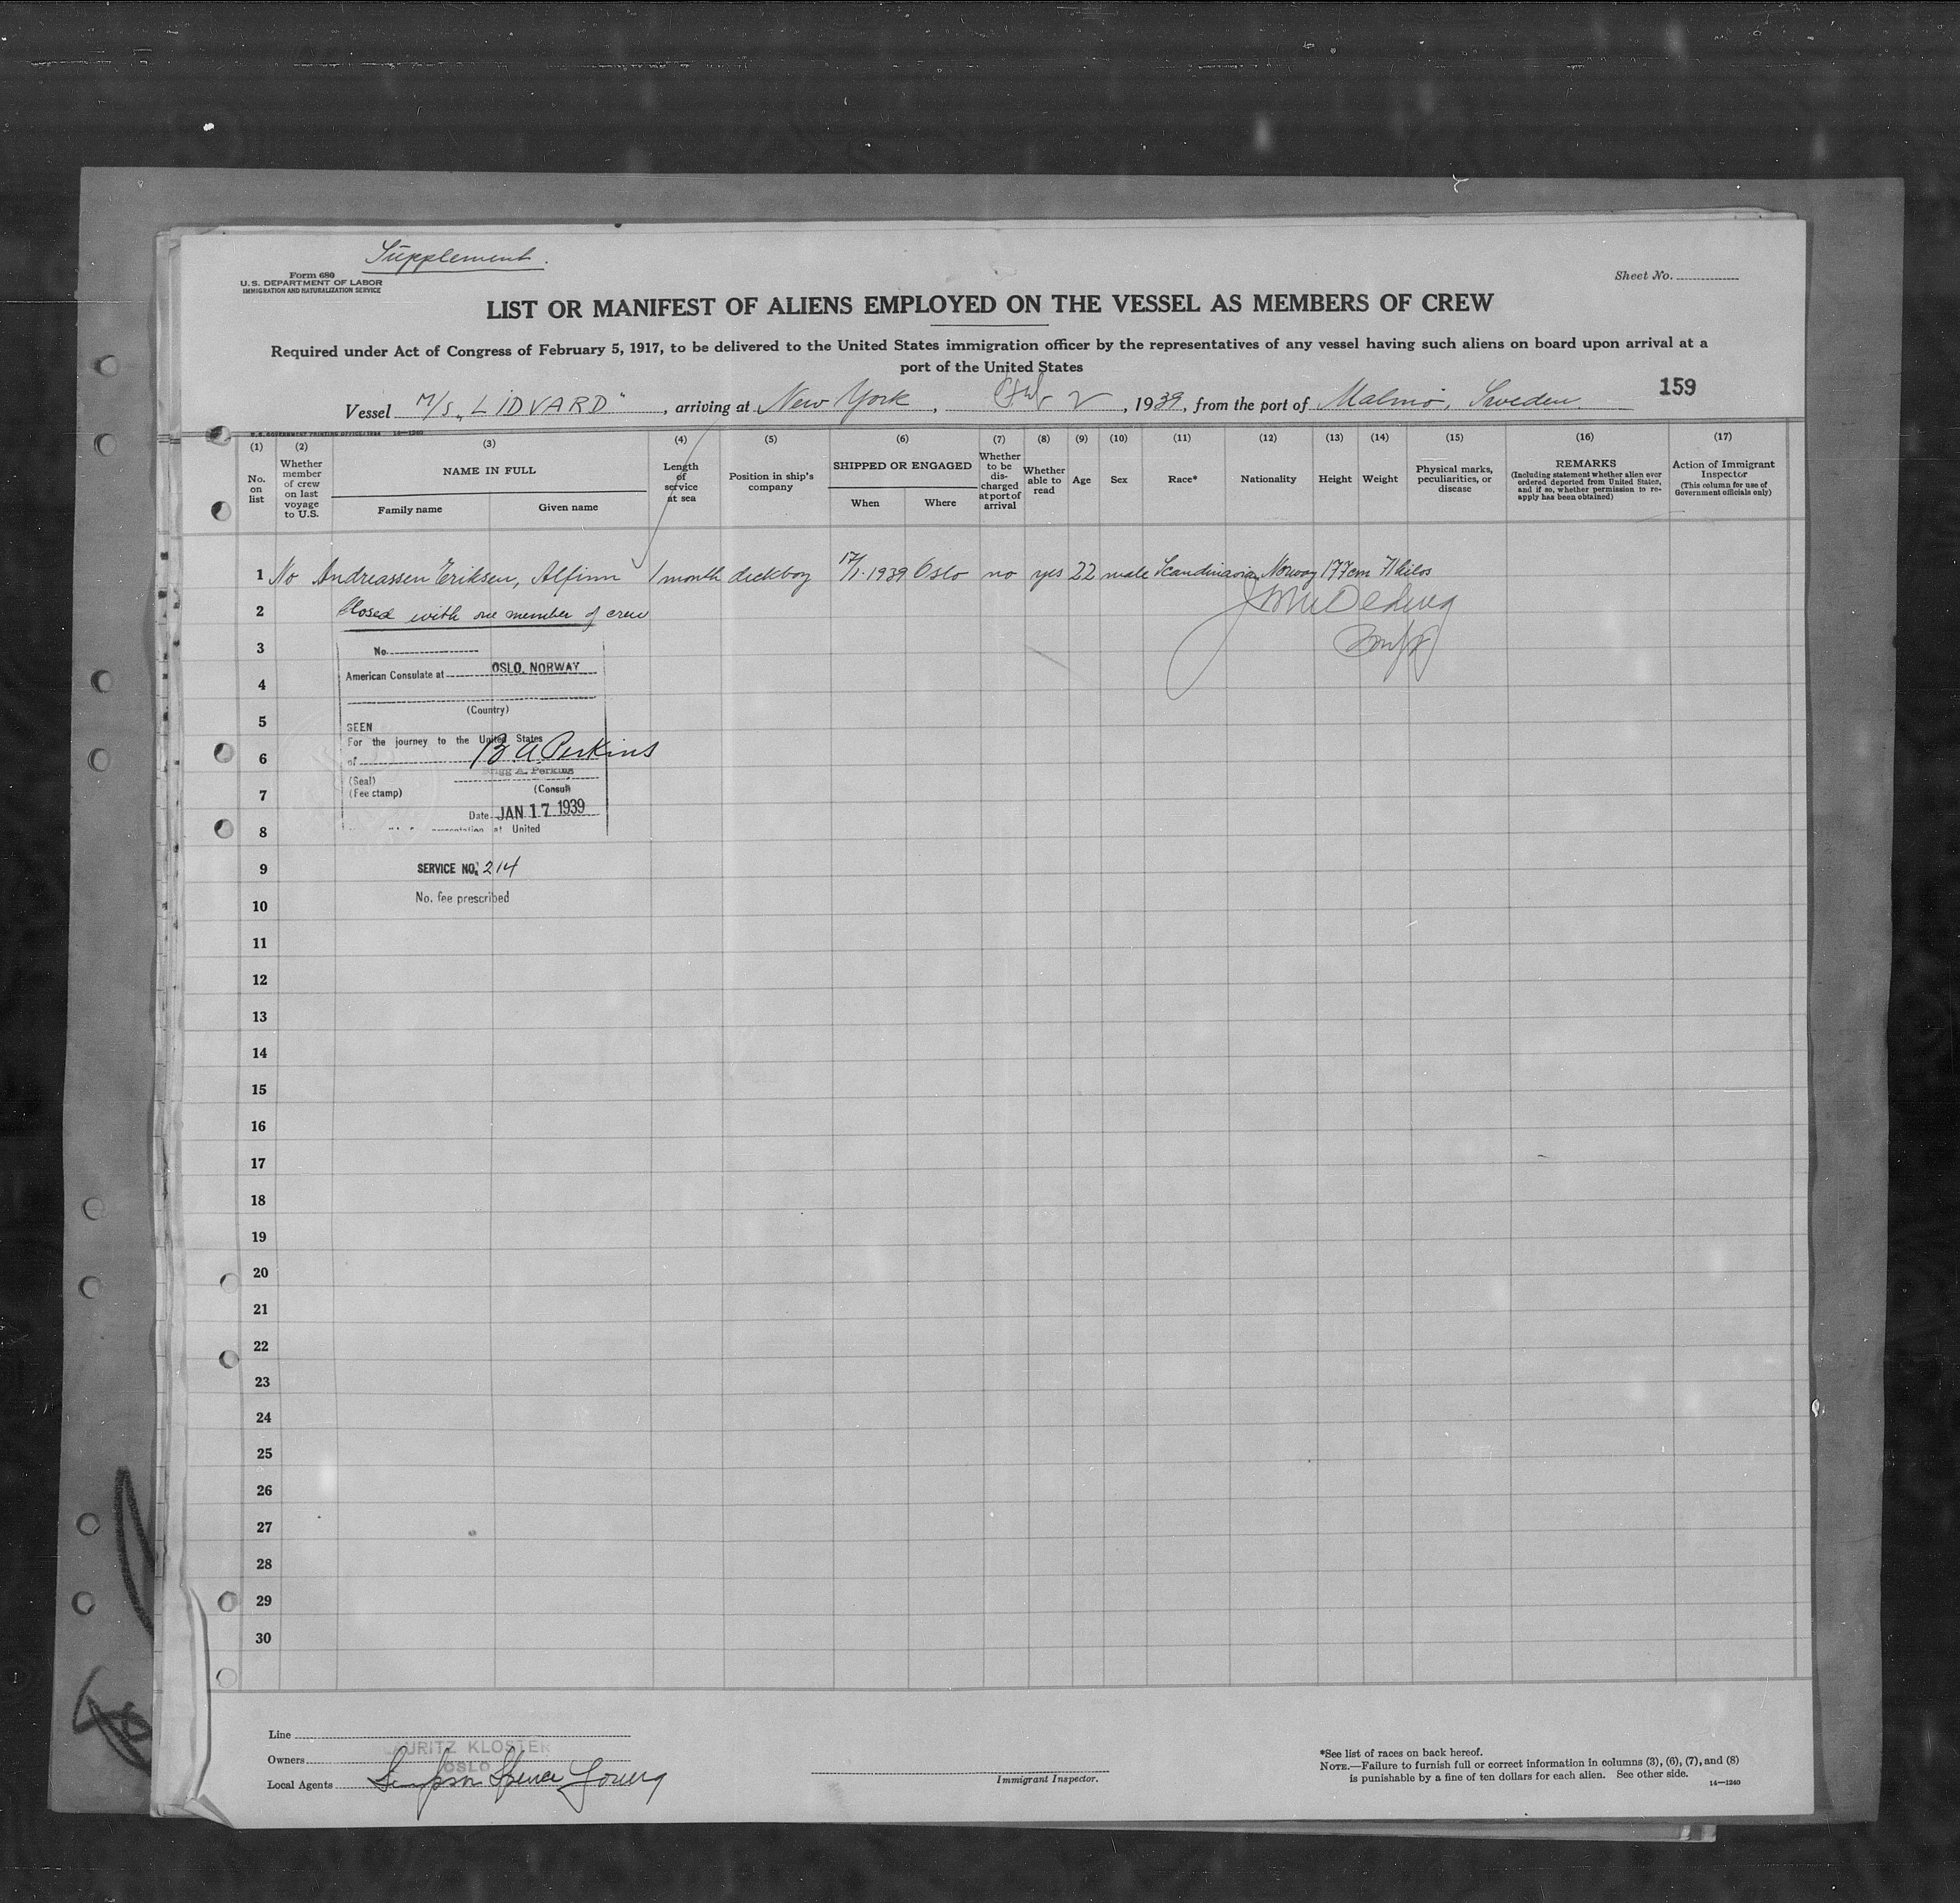 Supplement.
Form 680
U. S. DEPARTMENT OF LABOR
IMMIGRATION AND NATURALIZATION SERVICE
Sheet No.
LIST OR MANIFEST OF ALIENS EMPLOYED ON THE VESSEL AS MEMBERS OF CREW
Required under Act of Congress of February 5, 1917, to be delivered to the United States immigration officer by the representatives of any vessel having such aliens on board upon arrival at a
port of the United States
159
Vessel M/S "LIDVARD", arriving at New York, 2, 1939, from the port of Malmö, Sweden.
U.S. GOVERNMENT PRINTING OFFICE 14—1240
(1) (2) (3) (4) (5) (6) (7) (8) (9) (10) (11) (12) (13) (14) (15) (16) (17)
No. on list
Whether member of crew on last voyage to U.S.
NAME IN FULL
Family name
Given name
Length of service at sea
Position in ship's company
SHIPPED OR ENGAGED
When
Where
Whether to be discharged at port of arrival
Whether able to read
Age
Sex
Race*
Nationality
Height
Weight
Physical marks, peculiarities, or disease
REMARKS
(Including statement whether alien ever ordered deported from United States, and if so, whether permission to reapply has been obtained)
Action of Immigrant Inspector
(This column for use of Government officials only)
1 No Andreassen Eriksen, Alfinn 1 month deckboy 17/1.1939 Oslo no yes 22 male Scandinavian Norway 177cm 71 kilos
2 Closed with one member of crew
3
No.
4
American Consulate at OSLO, NORWAY
(Country)
5
SEEN
For the journey to the United States
6
of B A Perkins
Brigg A. Perkins
(Seal)
7
(Fee stamp) (Consul)
Date JAN 17 1939
8
at United
9
SERVICE NO. 214
10
No. fee prescribed
11
12
13
14
15
16
17
18
19
20
21
22
23
24
25
26
27
28
29
30
Line
Owners LAURITZ KLOSTER
OSLO
Local Agents Simpson Spence Young
Immigrant Inspector.
*See list of races on back hereof.
NOTE.—Failure to furnish full or correct information in columns (3), (6), (7), and (8)
is punishable by a fine of ten dollars for each alien. See other side.
14—1240